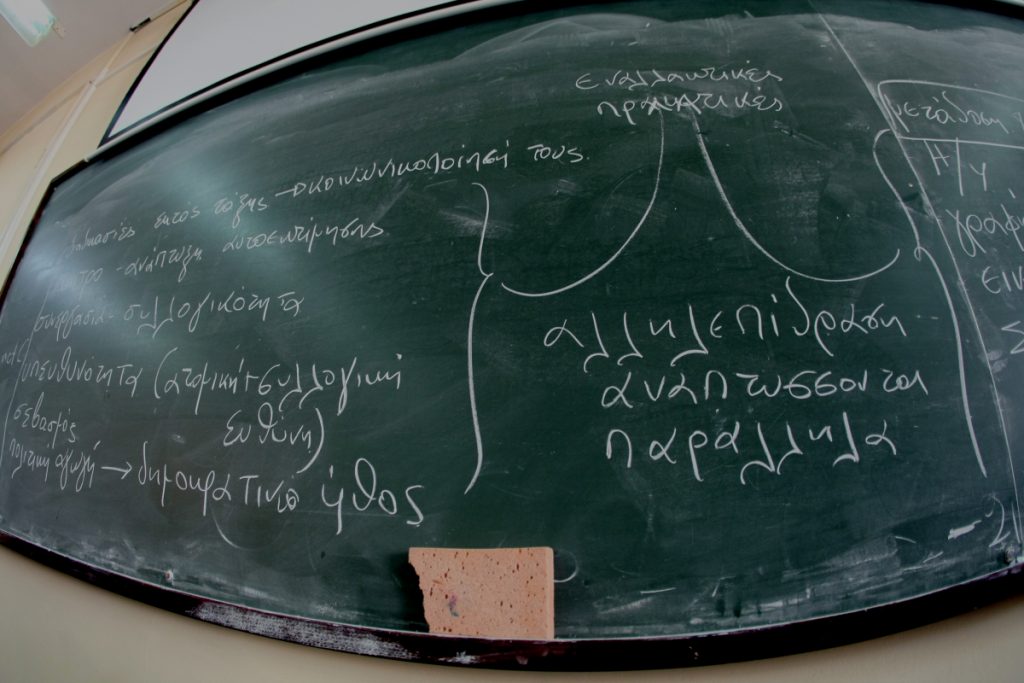 εναλλακτικές
πρακτικές
διαδικασίες εκτός τάξης → κοινωνικοποίησή τους
ανάπτυξη αυτοεκτίμησης
συνεργασία - συλλογικότητα
υπευθυνότητα (ατομική + συλλογική
ευθύνη)
σεβασμός
πολιτική αγωγή → δημοκρατικό ήθος
αλληλεπίδραση
αναπτύσσονται
παράλληλα
μετάδοση
Η/Υ